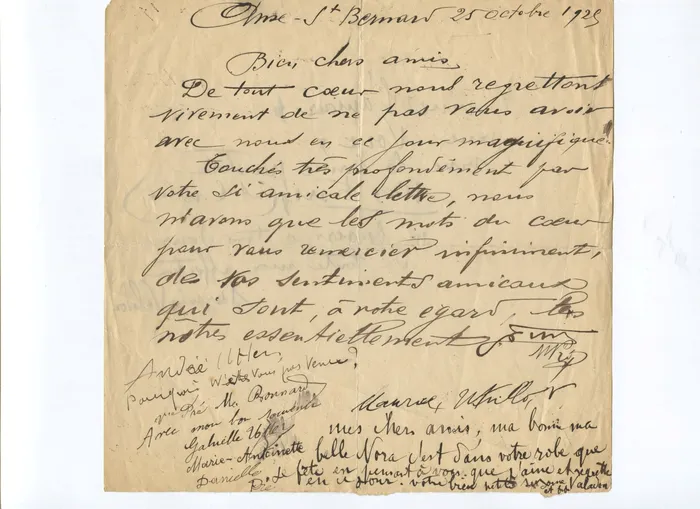 Anse - St Bernard 25 octobre 1925
Bien chers amis
De tout cœur nous regrettons
vivement de ne pas vous avoir
avec nous en ce jour magnifique.
Touchés très profondément par
votre si amicale lettre, nous
n'avons que les mots du cœur
pour vous remercier infiniment,
des vos sentiments amicaux
qui sont, à votre egard, les
nôtres essentiellement
André Utter,
Pourquoi n'êtes vous pas venus?
Me Bonnard
Avec mon bon souvenir
Gabrielle Utter
Marie-Antoinette
Danielle
Maurice, Utrillo, V
mes chers amis, ma bonne ma
belle Nora c'est dans votre robe que
fête en pensant à vous que j'aime et regrette
en ce jour. votre bien
Valadon